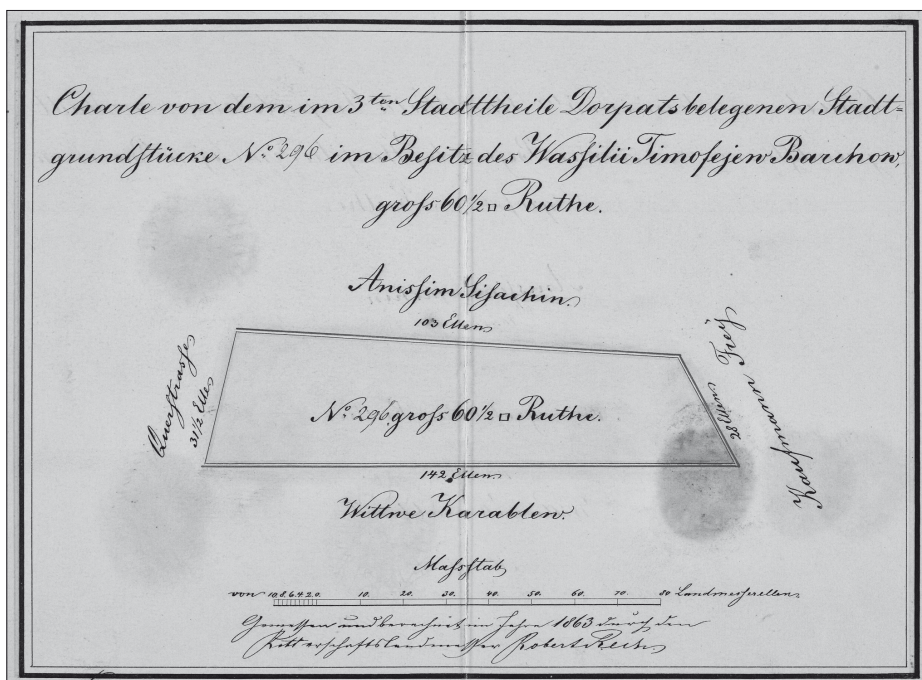 Charte von dem im 3ten Stadttheile Dorpats belegenen Stadt=
grundstücke No. 296 im Besitz des Wassilii Timofejew Barchow,
gross 60 1/2 □ Ruthe.
Anissim Sisachin.
103 Ellen
Querstrasse
31 1/2 Ellen
No. 296 gross 60 1/2 □ Ruthe.
28 Ellen
Kaufmann Frey
142 Ellen.
Wittwe Karablew.
Massstab
von 10.8.6.4.2.0. 10. 20. 30. 40. 50. 60. 70. 80 Landmesserellen.
Gemessen und berechnet im Jahre 1863 durch den
Ritterschaftslandmesser Robert